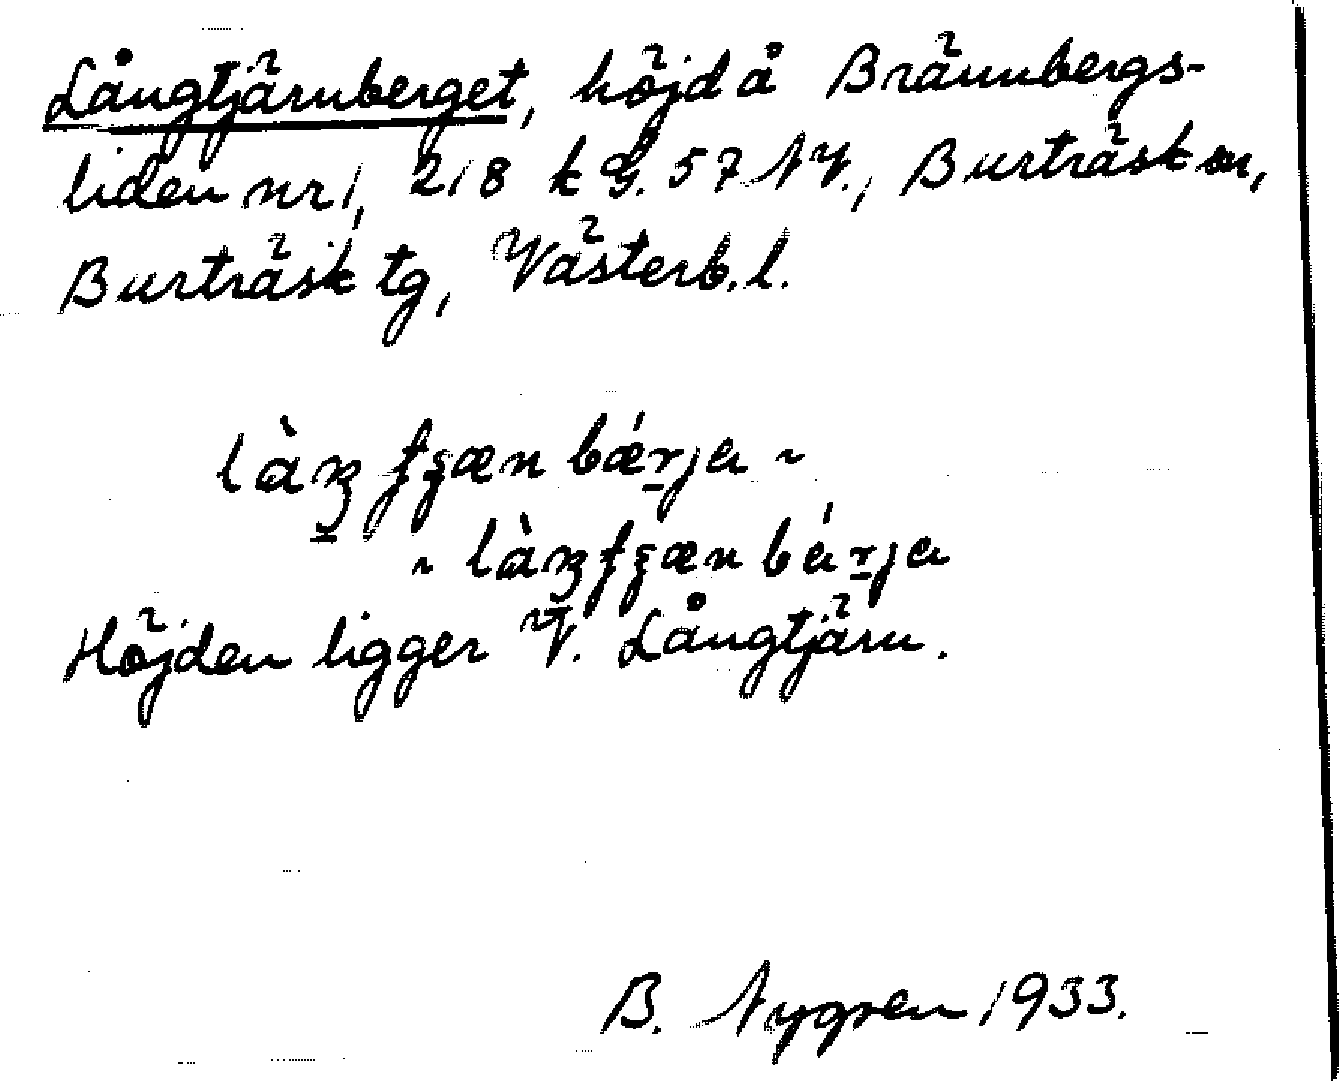 Långtjärnberget, höjd å Brännbergs-
liden nr 1, 218 k G. 57 NV., Burträsk sn,
Burträsk tg, Västerb. l.
Höjden ligger V. Långtjärn.
B. Nygren 1933.